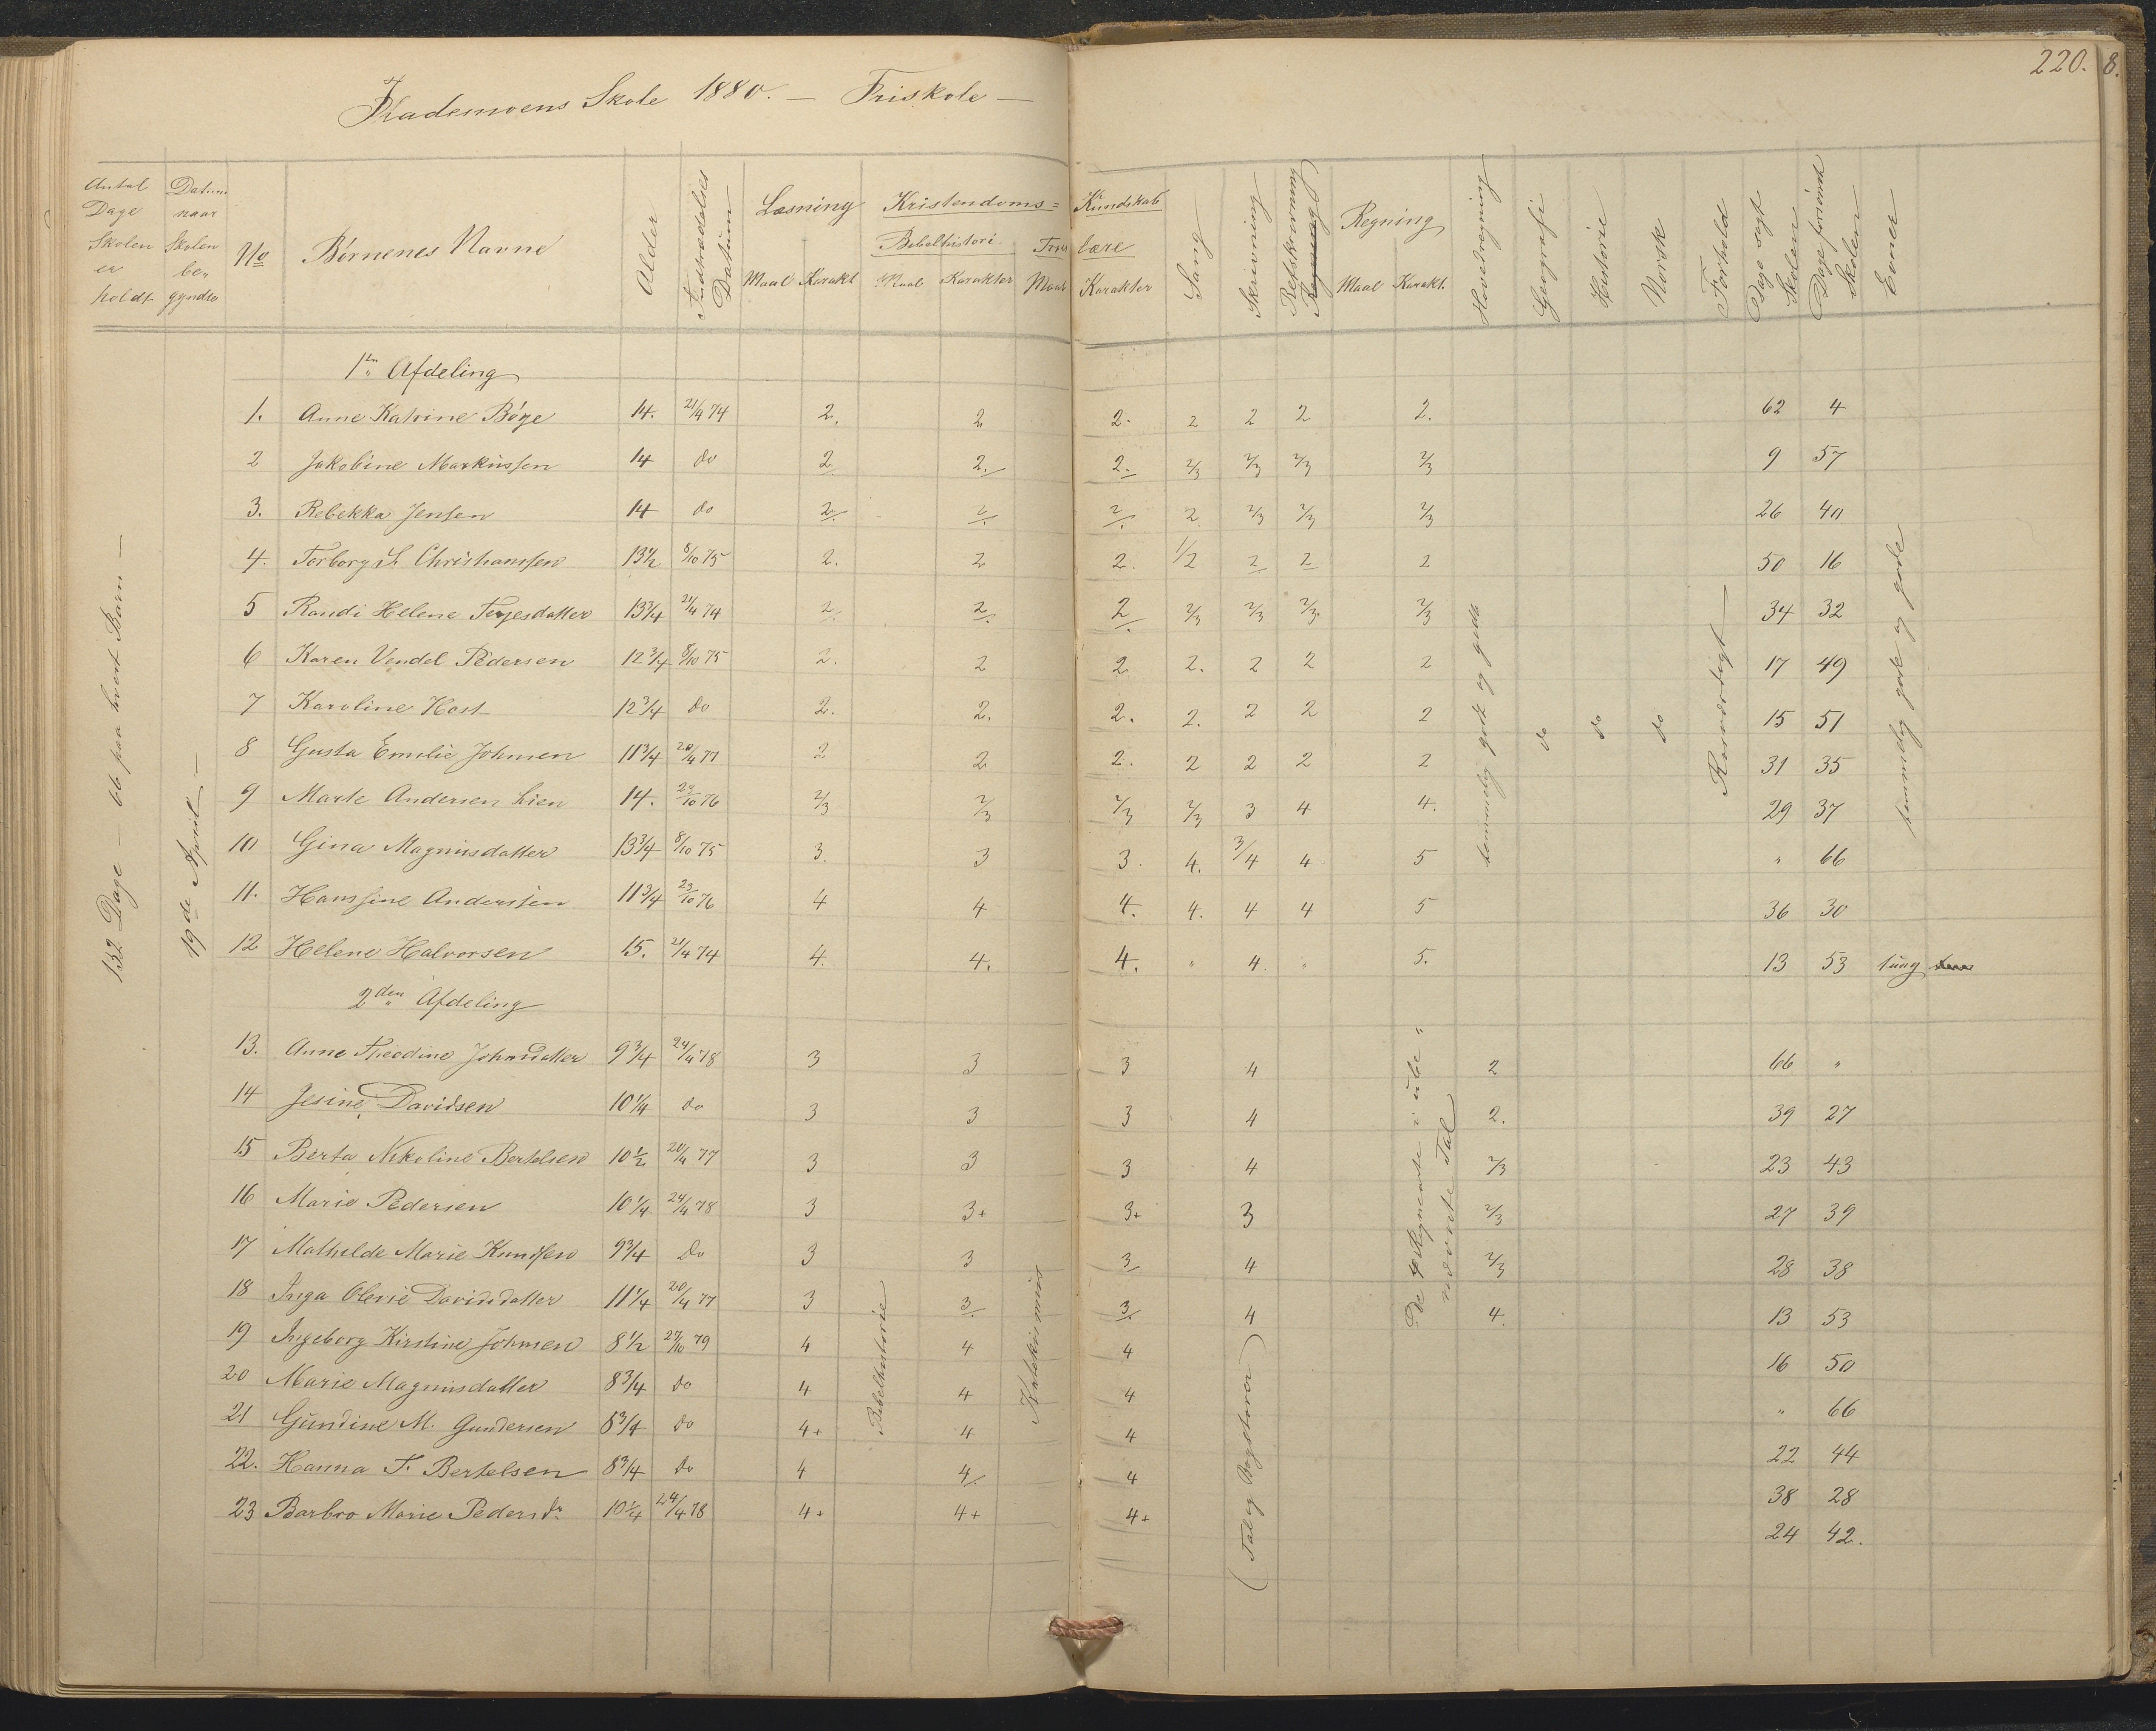 220. 8.
Skole 1880. — Friskole —
Antal Dage Skolen er holdt
Datum naar Skolen be„ gyndte
No
Børnenes Navne
Alder
Indtrædelses Datum
Læsning Maal Karakt
Kristendoms= Kundskab
Bibelhistori. Maal Karakter
Troes lære Maal Karakter
Sang
Skrivning
Retskrivning
Regning Maal Karakt.
Hovedregning
Geografi
Historie
Norsk
Forhold
Dage søgt Skolen
Dage forsømt Skolen
Evner
132 Dage — 66 paa hvert Barn —
19de April —
1ste Afdeling
1. Anne Katrine Børje 14. 21/4 74 2. 2 2. 2 2 2 2. 62 4
2 Jakobine Markussen 14 do 2 2. 2. 2/3 2/3 2/3 2/3 9 57
3. Rebekka Jensen 14 do 2. 2. 2. 2 2/3 2/3 2/3 26 40
4. Torborg S. Christianssen 13½ 8/10 75 2. 2 2. 1/2 2 2 2 50 16
5 Randi Helene Terjesdatter 13¾ 21/4 74 2. 2. 2. 2/3 2/3 2/3. 2/3 34 32
6 Karen Vendel Pedersen 12¾ 8/10 75 2. 2 2 2. 2 2 2 17 49
7 Karoline Hast 12¾ do 2. 2. 2. 2. 2 2 2 15 51
8 Gusta Emilie Johnsen 11¾ 20/4 77 2 2 2. 2 2 2 2 31 35
9 Marte Andersen Lien 14. 23/10 76 2/3 2/3 2/3 2/3 3 4 4. 29 37
10 Gina Magnusdatter 13¾ 8/10 75 3. 3 3. 4. 3/4 4 5 „ 66
11. Hansine Andersen 11¾ 23/10 76 4 4 4. 4. 4 4 5 36 30
12 Helene Halvorsen 15. 21/4 74 4. 4. 4. „ 4. „ 5. 13 53 tung
temmelig gode og gode
do
do
do
Rosværdigt —
temmelig gode og gode
2den Afdeling
13. Anne Theodine Johnsdatter 9¾ 24/4 78 3 3 3 4 2 66 „
14 Jesine Davidsen 10¼ do 3 3 3 4 2. 39 27
15 Berta Nikoline Bertelsen 10½ 20/4 77 3 3 3 4 2/3 23 43
16 Marie Pedersen 10¼ 24/4 78 3 3+ 3+ 3 2/3 27 39
17 Mathilde Marie Knudsen 9¾ Do 3 3 3 4 2/3 28 38
18 Inga Olene Davidsdatter 11¼ 20/4 77 3 3 3 4 4. 13 53
19 Ingeborg Kirstine Johnsen 8½ 27/10 79 4 4 4 16 50
20 Marie Magnusdatter 8¾ do 4 4 4 „ 66
21 Gundine M. Gundersen 8¾ do 4+ 4 4 22 44
22. Hanna T. Bertelsen 8¾ do 4 4 4 38 28
23 Barbro Marie Pedersdr. 10¼ 24/4 78 4+ 4+ 4+ 24 42.
Bibelhistorie
Katekismus
(Tal og Bogstaver)
De 4 Regnearter i ube„
nævnte Tal